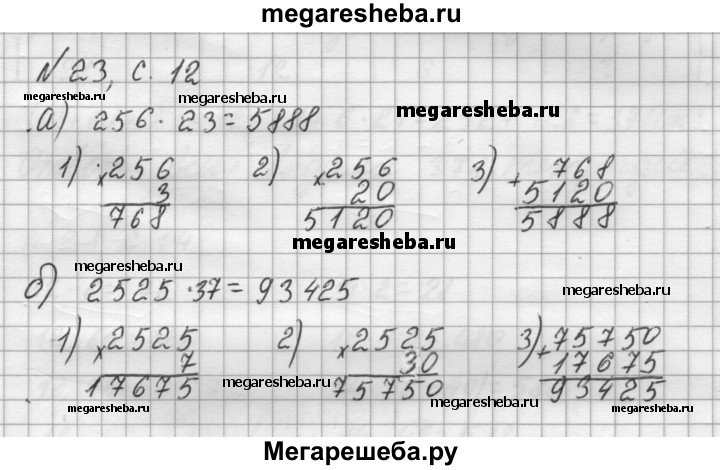 megaresheba.ru
№ 23, с. 12
megaresheba.ru megaresheba.ru
а) 256 · 23 = 5888 megaresheba.ru
1) × 256 2) × 256 3) + 768
3 20 5120
768 5120 5888
megaresheba.ru
megaresheba.ru
б) 2525 · 37 = 93425 megaresheba.ru
1) × 2525 2) × 2525 3) + 75750
7 30 17675
17675 75750 93425
megaresheba.ru megaresheba.ru megaresheba.ru megaresheba.ru
Мегарешеба.ру